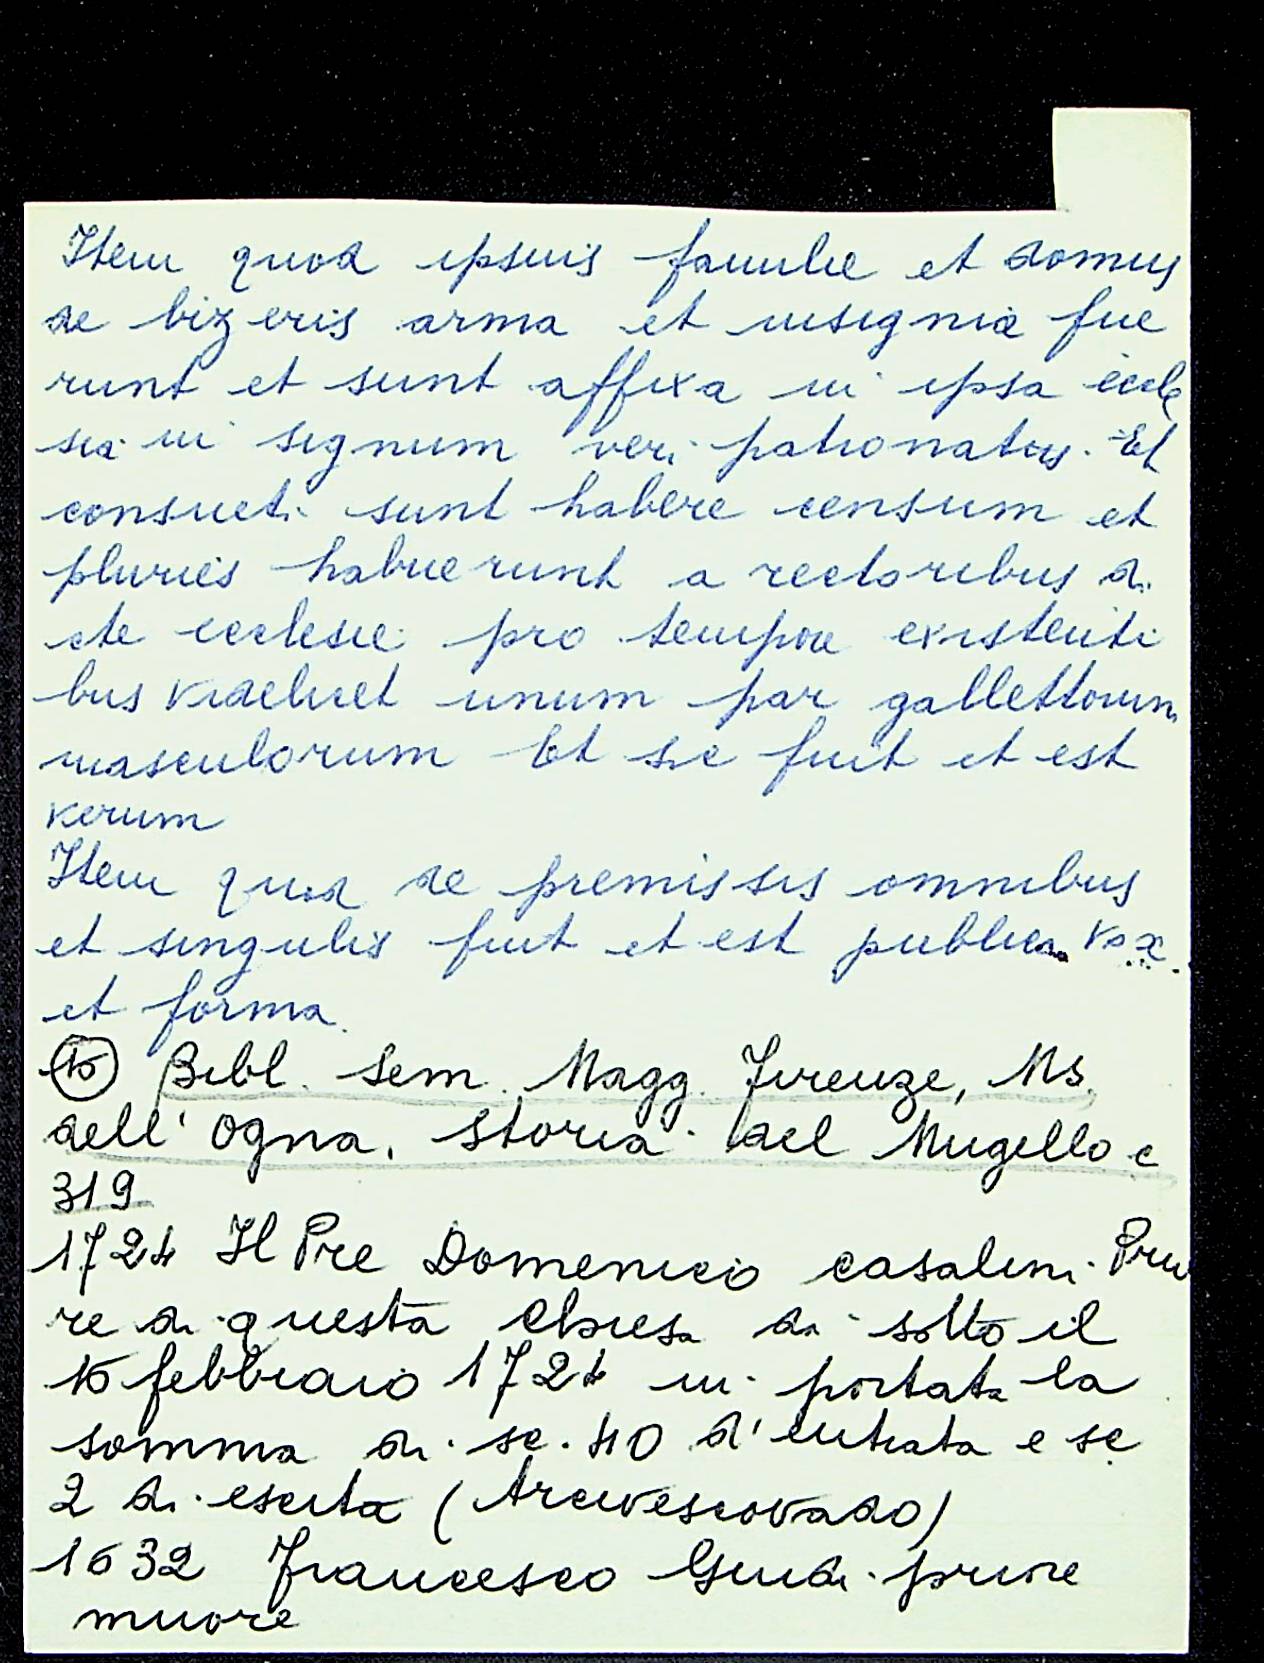 Item quod ipsius familie et domus
de bizeris arma et insignia fue
runt et sunt affixa in ipsa eccle
sia in signum veri patronatus. Et
consueti sunt habere censum et
pluries habuerunt a rectoribus di
cte ecclesie pro tempore existenti
bus videlicet unum par gallettorum
masculorum Et sic fuit et est
verum
Item quod de premissis omnibus
et singulis fuit et est publica vox
et forma.
Bibl. Sem. Magg. Firenze, Ms.
dell'Ogna. Storia del Mugello c
319
1724 Il Pre Domenico Casalini Prio
re di questa Chiesa di sotto il
16 febbraio 1724 in portata la
somma di sc. 40 d'entrata e sc
2 di escita (Arcivescovado)
1632 Francesco Guidi priore
muore